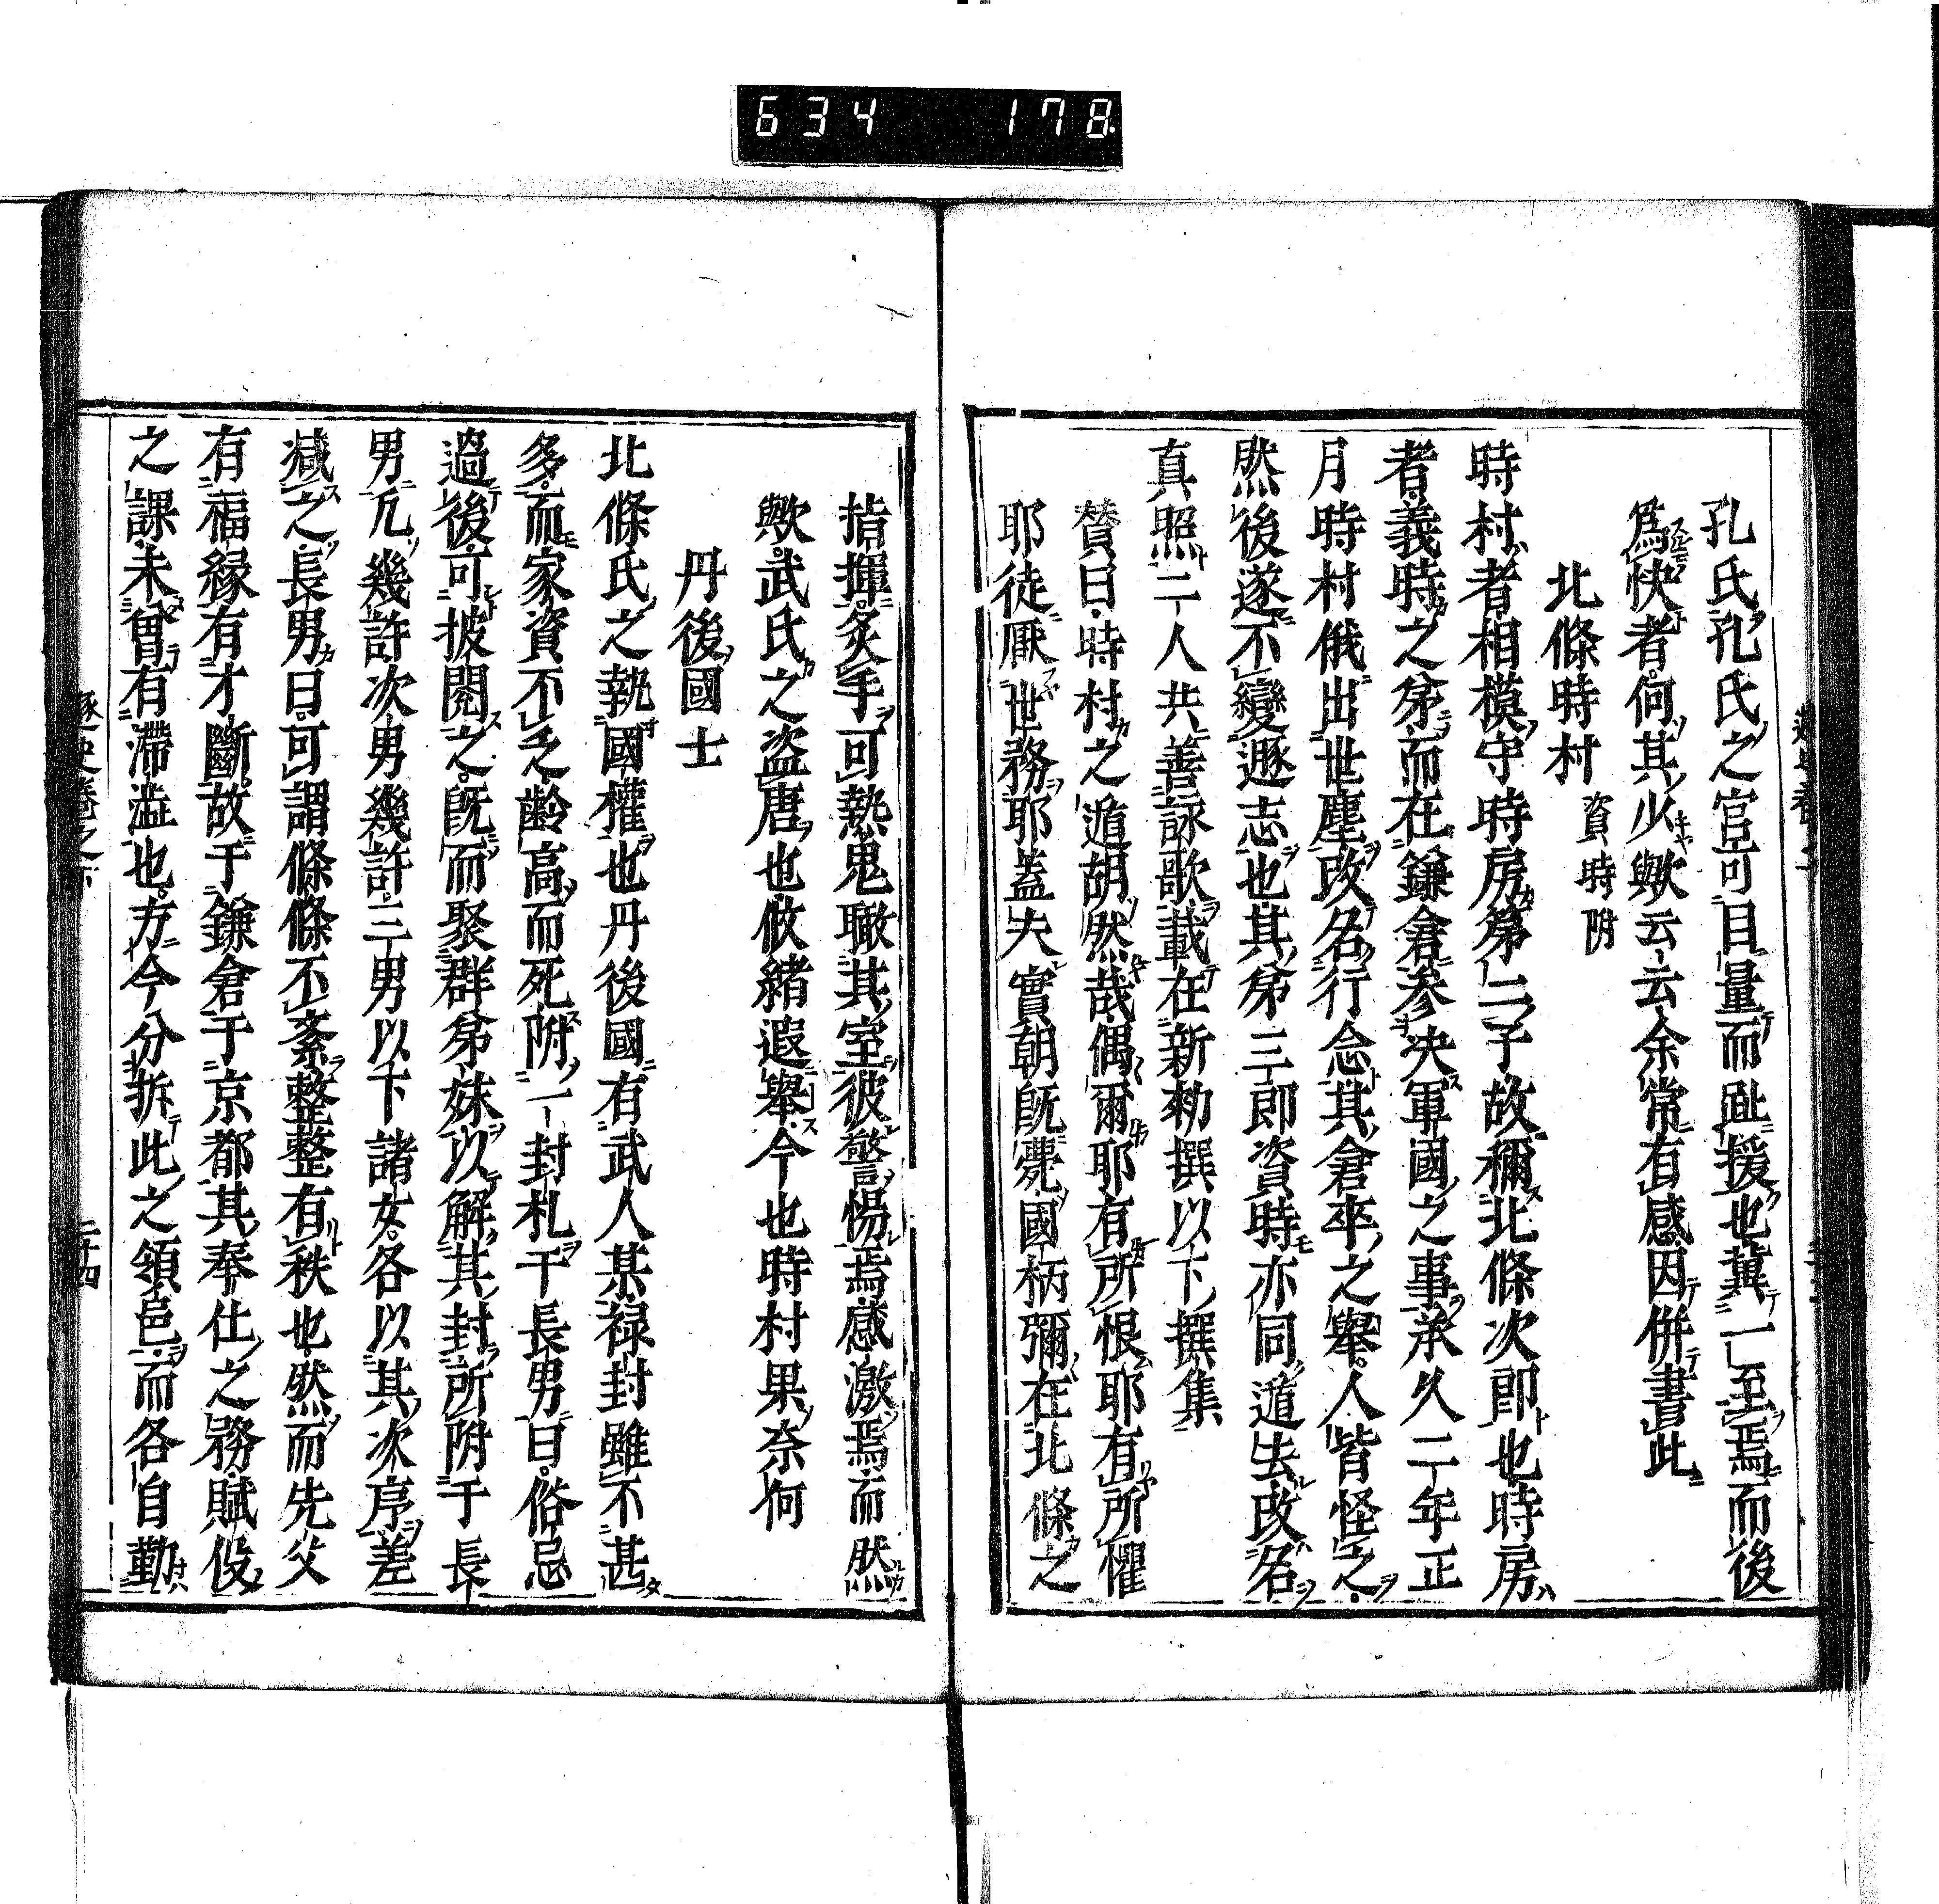 634 178
孔氏孔氏之官可目量而趾援也冀一至焉而後
爲快者何其少歟云云余常有感因併書此
北條時村 資時附
時村者相模守時房第二子故稱北條次郎也時房
者義時之弟而在鎌倉參决軍國之事承久二年正
月時村俄出世塵改名行念其倉卒之舉人皆怪之
然後遂不變遯志也其弟三郎資時亦同遁去改名
真照二人共善詠歌載在新勅撰以下撰集
賛曰時村之遁胡然哉偶爾耶有所恨耶有所懼
耶徒厭世務耶蓋夫實朝既薨國柄彌在北條之
指揮炙手可熱鬼瞰其室彼警惕焉感激焉而然
歟武氏之盗唐也攸緒遐舉今也時村果奈何
丹後國士
北條氏之執國權也丹後國有武人某禄封雖不甚
多而家資不乏齢高而死附一封札于長男曰俗忌
過後可披閲之既而聚群弟妹以解其封所附于長
男凢幾許次男幾許三男以下諸女各以其次序差
减之長男曰可謂條條不紊整整有秩也然而先父
有福縁有才斷故于鎌倉于京都其奉仕之務賦役
之課未曾有滯溢也方今分拆此之領邑而各自勤
二十四